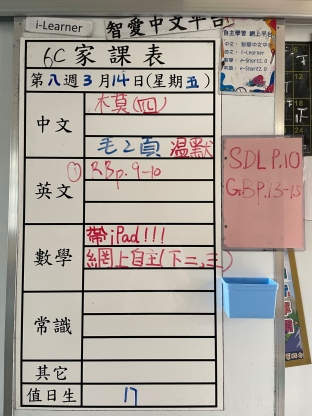 i-Learner 智愛中文平台
6C 家課表
第八週3月14日(星期五)
中文
木莫(四)
毛2頁 溫默
英文
① RBp. 9-10
數學
帶iPad!!!
網上自主(下二,三)
常識
其它
值日生 17
自主學習 網上平台
中文：智愛中文平台
英文：i-Learner
數學：e-Smart2.0
常識：e-Smart2.0
SDL P.10
GBP.13-15